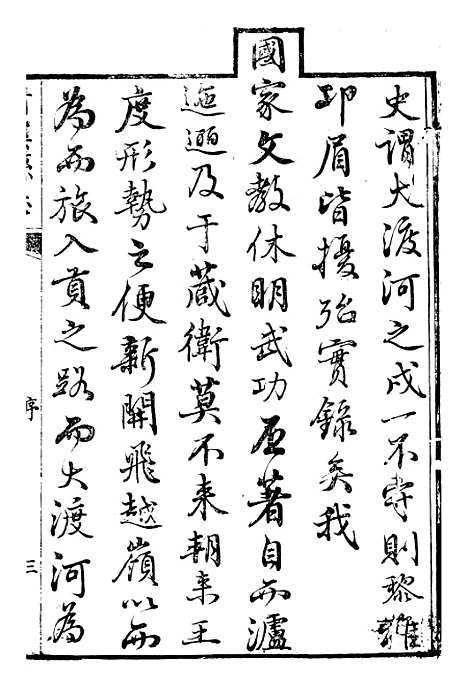 史謂大渡河之戍一不守則黎雅
邛眉皆擾殆實錄矣我
國家文教休明武功丕著自西瀘
迤邐及于藏衛莫不来朝来王
度形勢之便新開飛越嶺以西
為西旅入貢之路而大渡河為
序
三